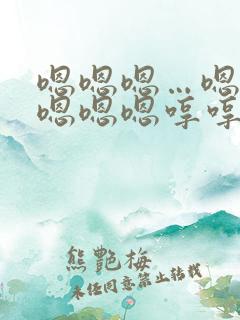 嗯嗯嗯…嗯
嗯嗯嗯哼哼
熊艷梅
未经同意禁止转载